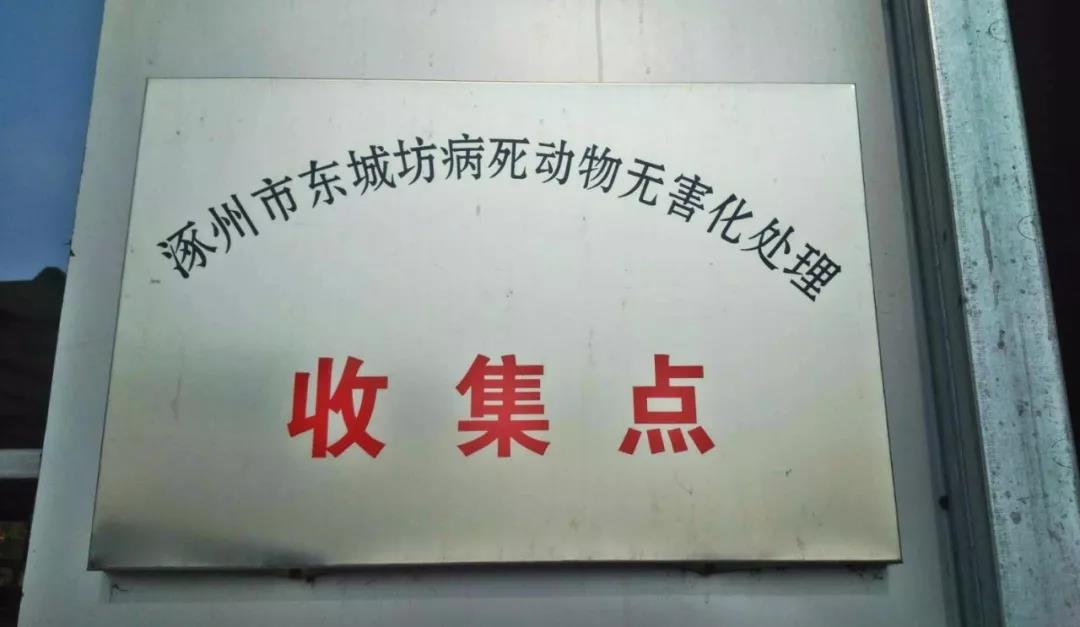 涿州市东城坊病死动物无害化处理
收集点